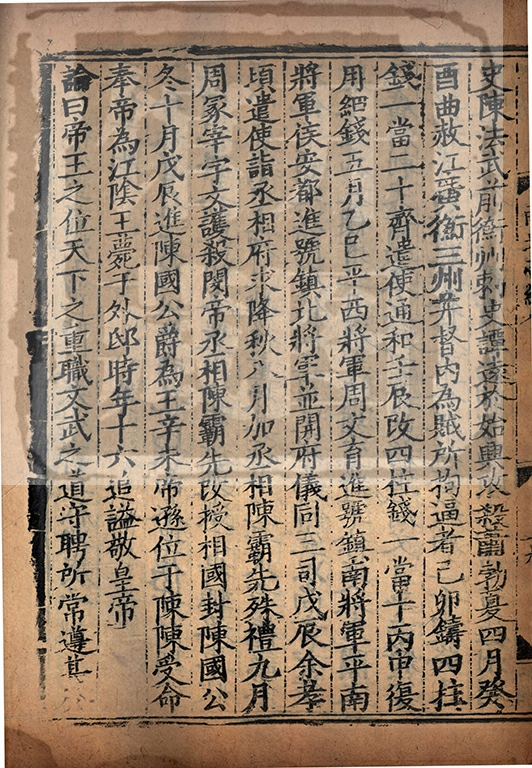 史陳法武前衡州刺史譚遠於始興攻殺蕭勃夏四月癸
酉曲赦江廣衡三州并督內為賊所拘逼者己卯鑄四柱
錢一當二十齊遣使通和壬辰改四柱錢一當十丙申復
用細錢五月乙巳平西將軍周文育進號鎮南將軍平南
將軍侯安都進號鎮北將軍並開府儀同三司戊辰余孝
頃遣使詣丞相府求降秋八月加丞相陳霸先殊禮九月
周冢宰宇文護殺閔帝丞相陳霸先改授相國封陳國公
冬十月戊辰進陳國公爵為王辛未帝遜位于陳陳受命
奉帝為江陰王薨于外邸時年十六追謚敬皇帝
論曰帝王之位天下之重職文武之道守聘所常遵其